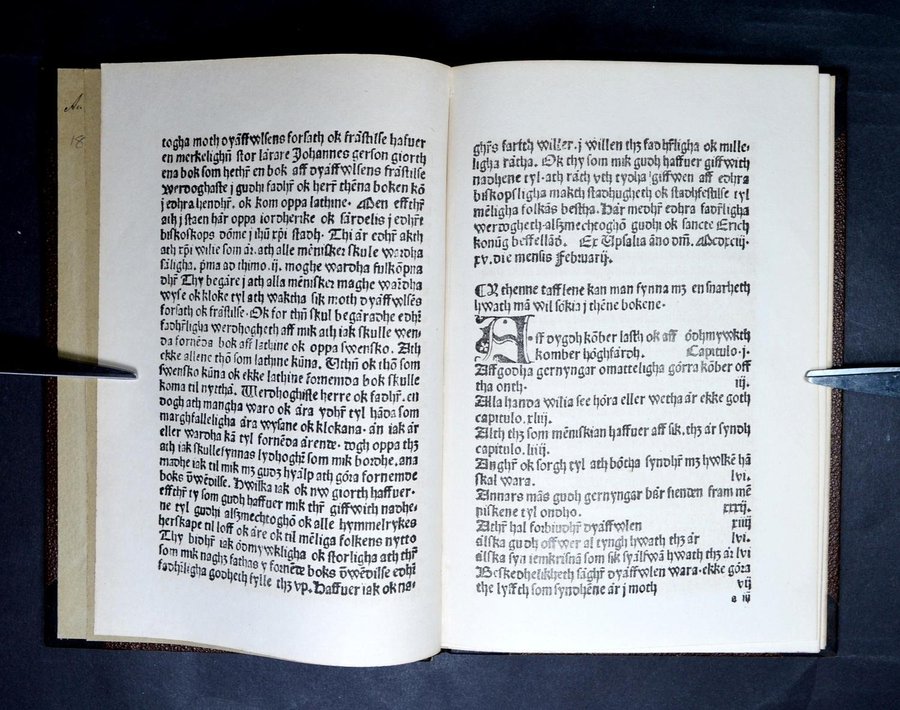 togha moth dyäffwlsens forsath ok frästilse hafuer
en merkelighñ stor lärare Johannes gerson giorth
ena bok som hethr̄ en bok aff dyäffwlsens frästilse
Werdoghaste j gudhi fadhr̄ ok herr̄ thēna boken kō
j edhra hendhr̄, ok kom oppa lathine. Men effthr̄
ath j staen här oppa iordherike ok särdelis j edhr̄t
biskoskops dōme j ihū xp̄i stadh. Thi är edhr̄ akth
ath xp̄i wilie som är. ath alle mēnisker skule wardha
säligha. p̄ma ad thimo .ij. moghe wardha fulkōpna
dhr̄ Thy begäre j ath alla mēnisker maghe wardha
wyse ok kloke tyl ath waktha sik moth dyäffwlsēs
forsath ok frästilse. Ok for thn̄ skul begäradhe edhr̄
fadhr̄ligha werdhogheth aff mik ath iak skulle wen-
da fornēda bok aff lathine ok oppa swensko. Ath
ekke allene thō som lathine kūna. Uthn̄ ok thō som
swensko kūna ok ekke lathine fornemda bok skulle
koma til nyttha. Werdhoghiste herre ok fadhr̄. en
dogh ath mangha waro ok ära ydhr̄ tyl hāda som
marghfalleligha ära wysane ok klokana. än iak är
eller wardha kā tyl fornēda ärende. dogh oppa thz
ath iak skulle fynnas lydhoghr̄ som mik bordhe, ana
madhe iak til mik mz gudz hyälp ath göra fornemde
boks v̄wēdilse. Hwilka iak ok nw giorth haffuer.
effthr̄ ty som gudh haffuer mik thr̄ giffwith nadhe.
ne tyl gudhi alszmechtoghō ok alle hymmelrykes
herskape til loff ok äre ok til mēliga folkens nytto
Thy bidhr̄ iak ödmywkligha ok storligha ath thr̄
som mik naghz fathas y fornēte boks v̄wēdilse edhr̄
fadhr̄ligha godheth fylle thz vp. Haffuer iak ok na-
ghr̄s farith willer. j willen thz fadhr̄ligha ok mille-
ligha rätha. Ok thy som mik gudh haffuer giffwith
nadhene tyl. ath räth vth tydha giffwen aff edhra
biskopsligha makth stadhugheth ok stadhfestilse tyl
mēligha folkās bestha. Här medhr̄ edhra fadr̄ligha
werdogheth. alszmechtoghō gudh ok sancte Erich
konūg beffellād. Ex Upsalia āno dn̄i. Mcdxciij.
xv. die mensis Februarij.
UR thenne tafflene kan man fynna mz en snarheth
hwath mā wil sökia j thēne bokene.
Aff dygdh kōber lasth ok aff ödhmywkth
komber höghfärdh. Capitulo .j.
Aff godha gernyngar omatteligha görra kōber off
tha onth. iij.
Alla handa wilia see höra eller wetha är ekke goth
capitulo. xliij.
Alth thz som mēniskian haffuer aff sik. thz är syndh
capitulo. liiij.
Anghr̄ ok sorgh tyl ath bötha syndhr̄ mz hwlkē hā
skal wara. lvi.
Annars mās gudh gernyngar bär fienden fram mē
niskene tyl ondho. xxxij.
Athr̄ hal forbiudhr̄ dyäffwlen xiiij
älska gudh offwer al tyngh hwath thz är lvi.
älska syn iemkrisnā som sik syälfwā hwath thz är lvi
Beskedhelikheth säghr̄ dyäffwlen wara. ekke göra
the lyffth som syndhēne är j moth vij
a iij